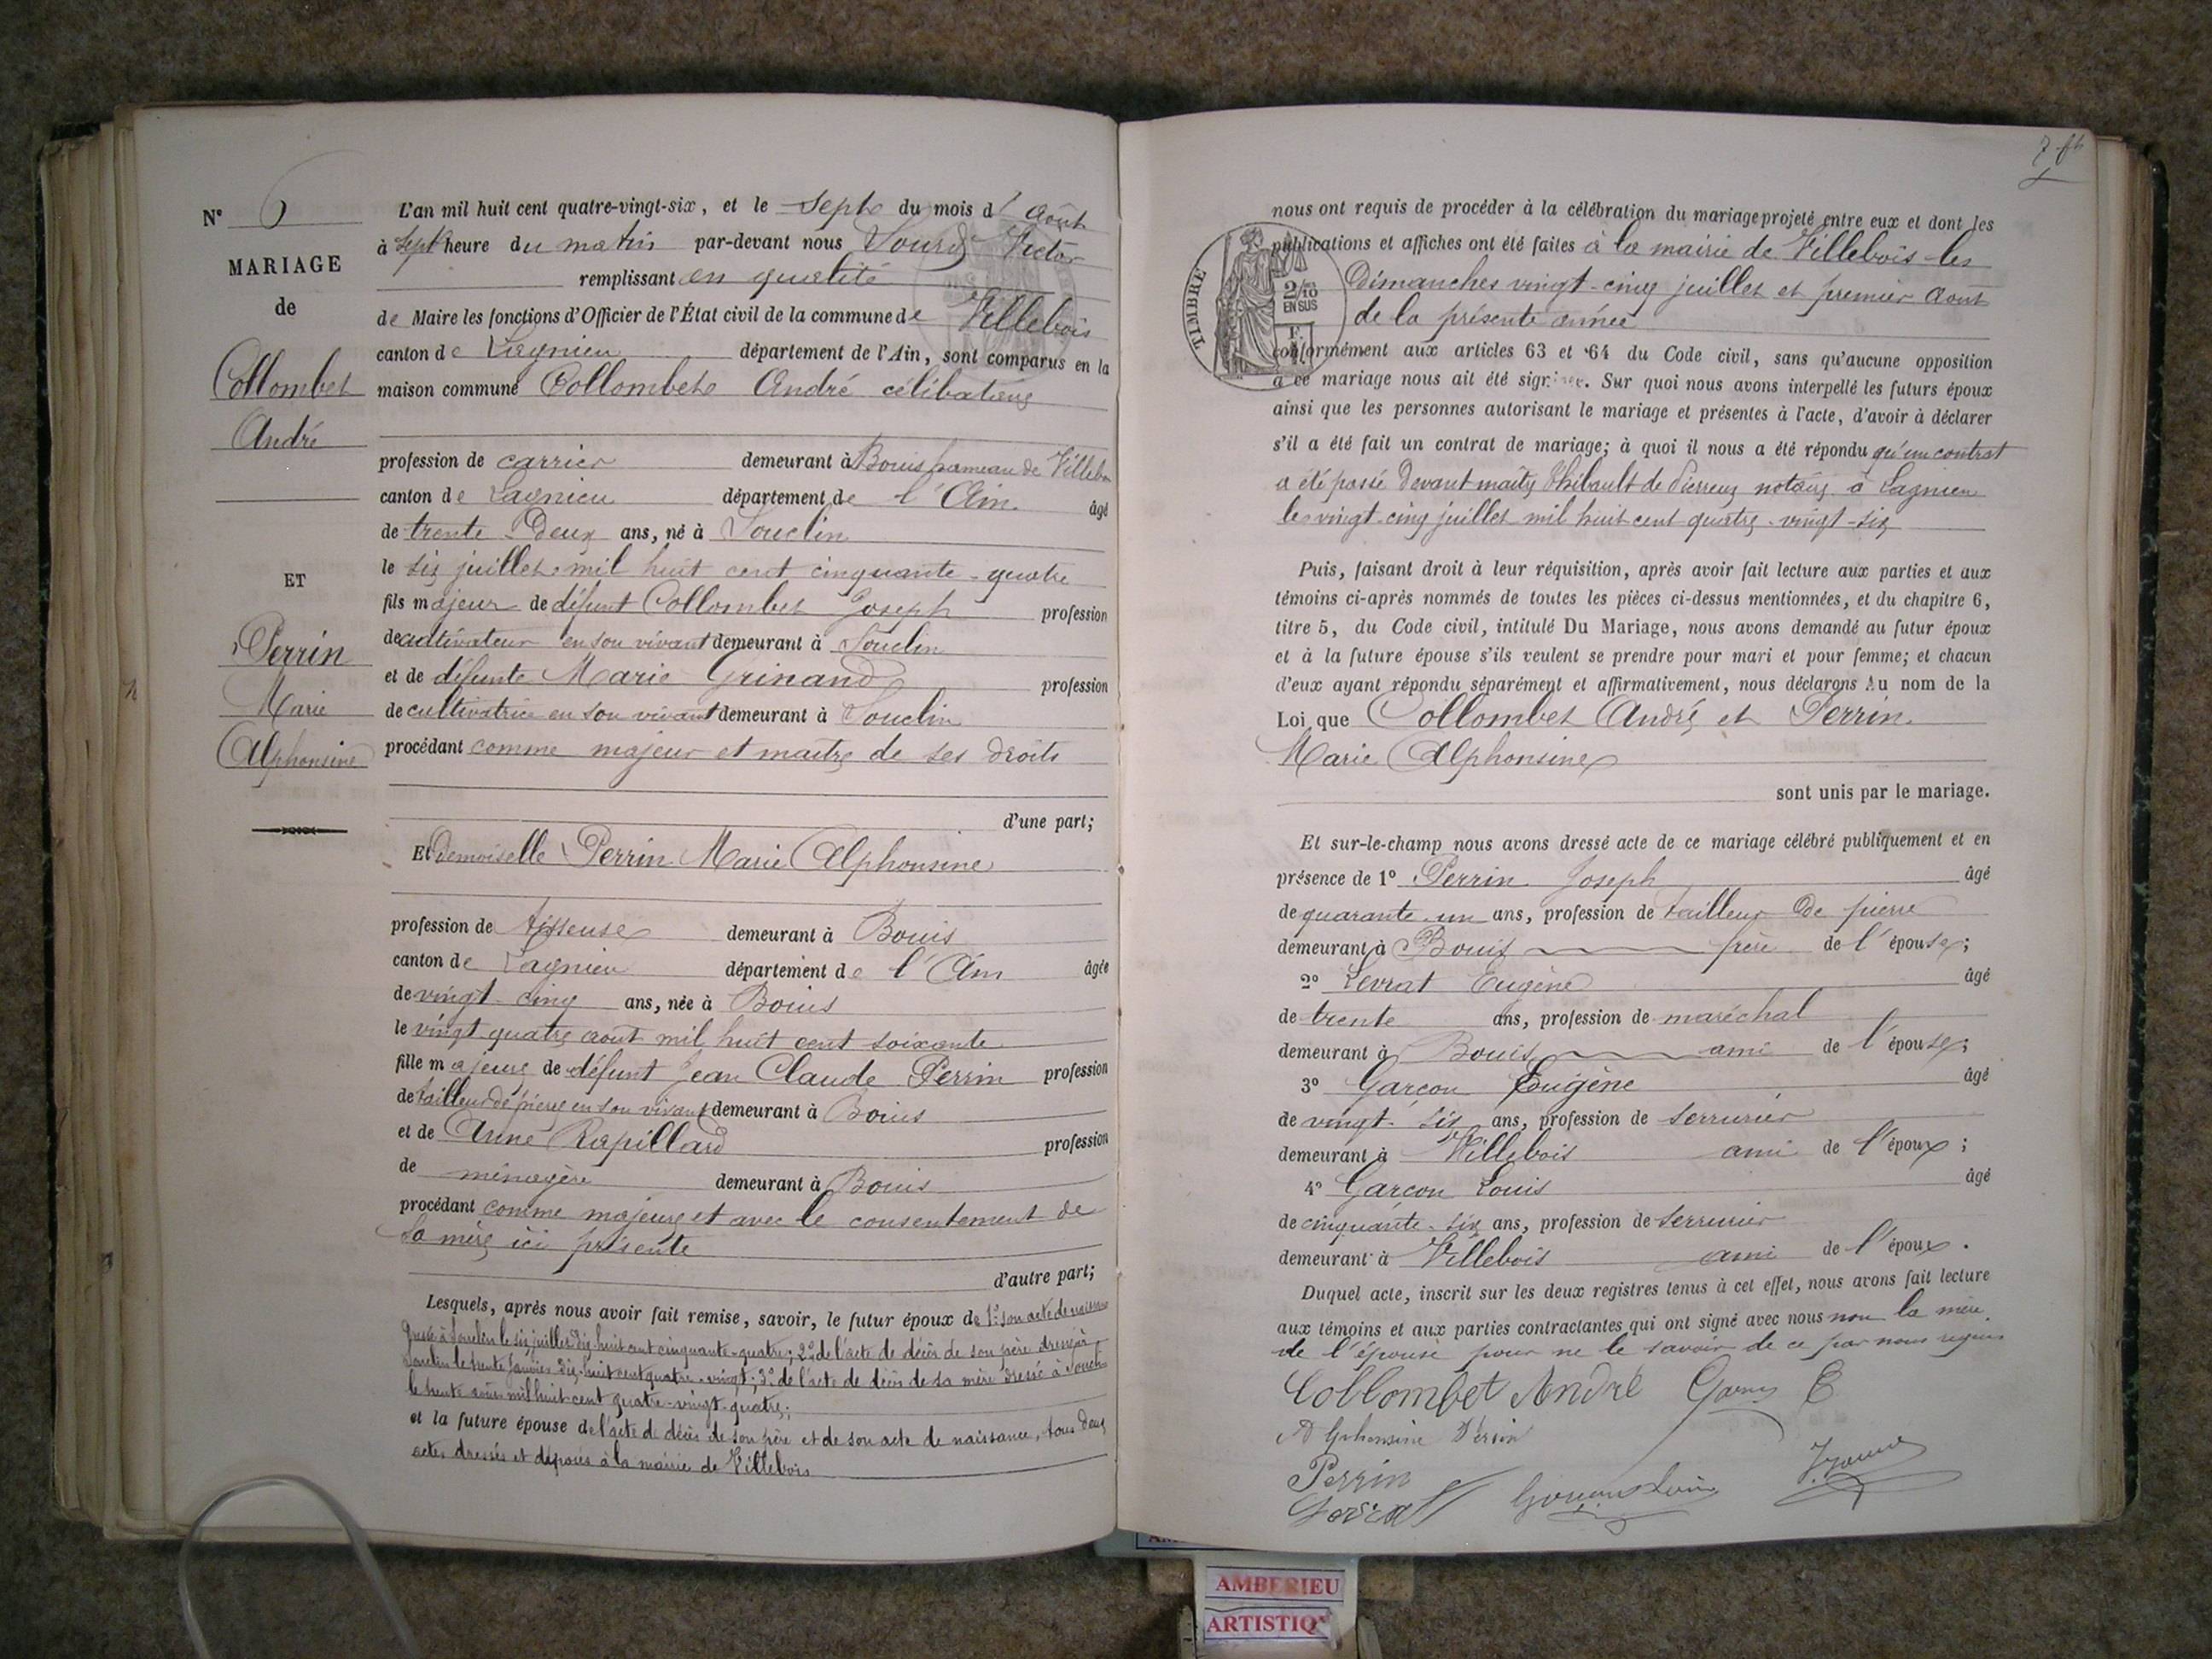 N° 6
MARIAGE
de
Collombet
André
ET
Perrin
Marie
Alphonsine
L'an mil huit cent quatre-vingt-six, et le sept du mois d'Août
à sept heure du matin par-devant nous Victor
remplissant en qualité
de Maire les fonctions d'Officier de l'État civil de la commune de Villebois
canton de Lagnieu département de l'Ain, sont comparus en la
maison commune Collombet André célibataire
profession de carrier demeurant à Bouis hameau de Villebois
canton de Lagnieu département de l'Ain. âgé
de trente Deux ans, né à Souclin
le six juillet mil huit cent cinquante-quatre
fils majeur de défunt Collombet Joseph profession
de cultivateur en son vivant demeurant à Souclin
et de défunte Marie Grinand profession
de cultivatrice en son vivant demeurant à Souclin
procédant comme majeur et maître de ses droits
d'une part;
Et Demoiselle Perrin Marie Alphonsine
profession de tisseuse demeurant à Bouis
canton de Lagnieu département de l'Ain âgée
de vingt-cinq ans, née à Bouis
le vingt quatre août mil huit cent soixante
fille majeure de défunt Jean Claude Perrin profession
de tailleur de pierre en son vivant demeurant à Bouis
et de Anne Rapillard profession
de ménagère demeurant à Bouis
procédant comme majeure et avec le consentement de
sa mère ici présente
d'autre part;
Lesquels, après nous avoir fait remise, savoir, le futur époux de 1° son acte de naissance
dressé à Souclin le six juillet dix huit cent cinquante-quatre; 2° de l'acte de décès de son père dressé à
Souclin le trente Janvier dix-huit cent quatre-vingt; 3° de l'acte de décès de sa mère dressé à Souclin
le trente août mil huit cent quatre-vingt-quatre;
et la future épouse de l'acte de décès de son père et de son acte de naissance, tous deux
actes dressés et déposés à la mairie de Villebois
7
nous ont requis de procéder à la célébration du mariage projeté entre eux et dont les
publications et affiches ont été faites à la mairie de Villebois les
Dimanches vingt-cinq juillet et premier Août
de la présente année
TIMBRE
2/10
EN SUS
conformément aux articles 63 et 64 du Code civil, sans qu'aucune opposition
à ce mariage nous ait été signifiée. Sur quoi nous avons interpellé les futurs époux
ainsi que les personnes autorisant le mariage et présentes à l'acte, d'avoir à déclarer
s'il a été fait un contrat de mariage; à quoi il nous a été répondu qu'un contrat
a été passé Devant maître Thibault de Pierreux notaire à Lagnieu
le vingt-cinq juillet mil huit cent quatre-vingt-six
Puis, faisant droit à leur réquisition, après avoir fait lecture aux parties et aux
témoins ci-après nommés de toutes les pièces ci-dessus mentionnées, et du chapitre 6,
titre 5, du Code civil, intitulé Du Mariage, nous avons demandé au futur époux
et à la future épouse s'ils veulent se prendre pour mari et pour femme; et chacun
d'eux ayant répondu séparément et affirmativement, nous déclarons Au nom de la
Loi que Collombet André et Perrin
Marie Alphonsine
sont unis par le mariage.
Et sur-le-champ nous avons dressé acte de ce mariage célébré publiquement et en
présence de 1° Perrin Joseph âgé
de quarante-un ans, profession de tailleur de pierre
demeurant à Bouis frère de l'épouse;
2° Levrat Eugène âgé
de trente ans, profession de maréchal
demeurant à Bouis ami de l'épouse;
3° Garçon Eugène âgé
de vingt-six ans, profession de serrurier
demeurant à Villebois ami de l'époux;
4° Garçon Louis âgé
de cinquante-six ans, profession de serrurier
demeurant à Villebois ami de l'époux.
Duquel acte, inscrit sur les deux registres tenus à cet effet, nous avons fait lecture
aux témoins et aux parties contractantes qui ont signé avec nous non la mère
de l'épouse pour ne le savoir de ce par nous requis
Collombet André E
Perrin
Perrin
AMBERIEU
ARTISTIQ